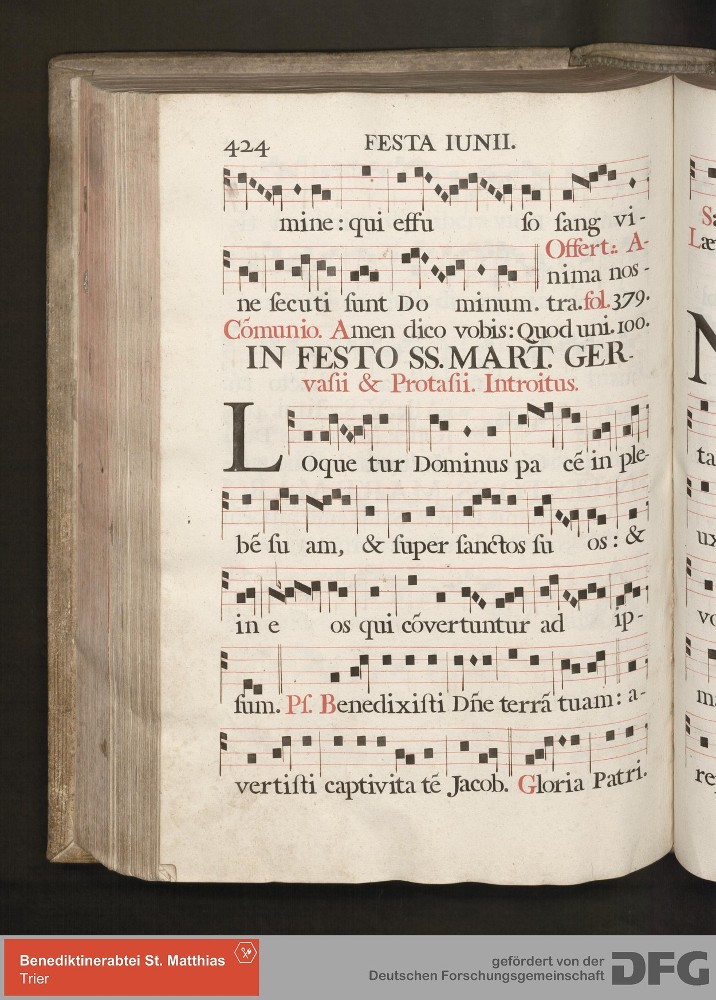 424 FESTA IUNII.
mine: qui effu so sang vi-
Offert.: A-
nima nos-
ne secuti sunt Do minum. tra. fol. 379.
Cõmunio. Amen dico vobis: Quod uni. 100.
IN FESTO SS. MART. GER-
vasii & Protasii. Introitus.
LOque tur Dominus pa cẽ in ple-
bẽ su am, & super sanctos su os: &
in e os qui cõvertuntur ad ip-
sum. Ps. Benedixisti Dñe terrã tuam: a-
vertisti captivita tẽ Jacob. Gloria Patri.
Sa
Læ
N
ta
ux
vo
re
Benediktinerabtei St. Matthias
Trier
gefördert von der
Deutschen Forschungsgemeinschaft DFG